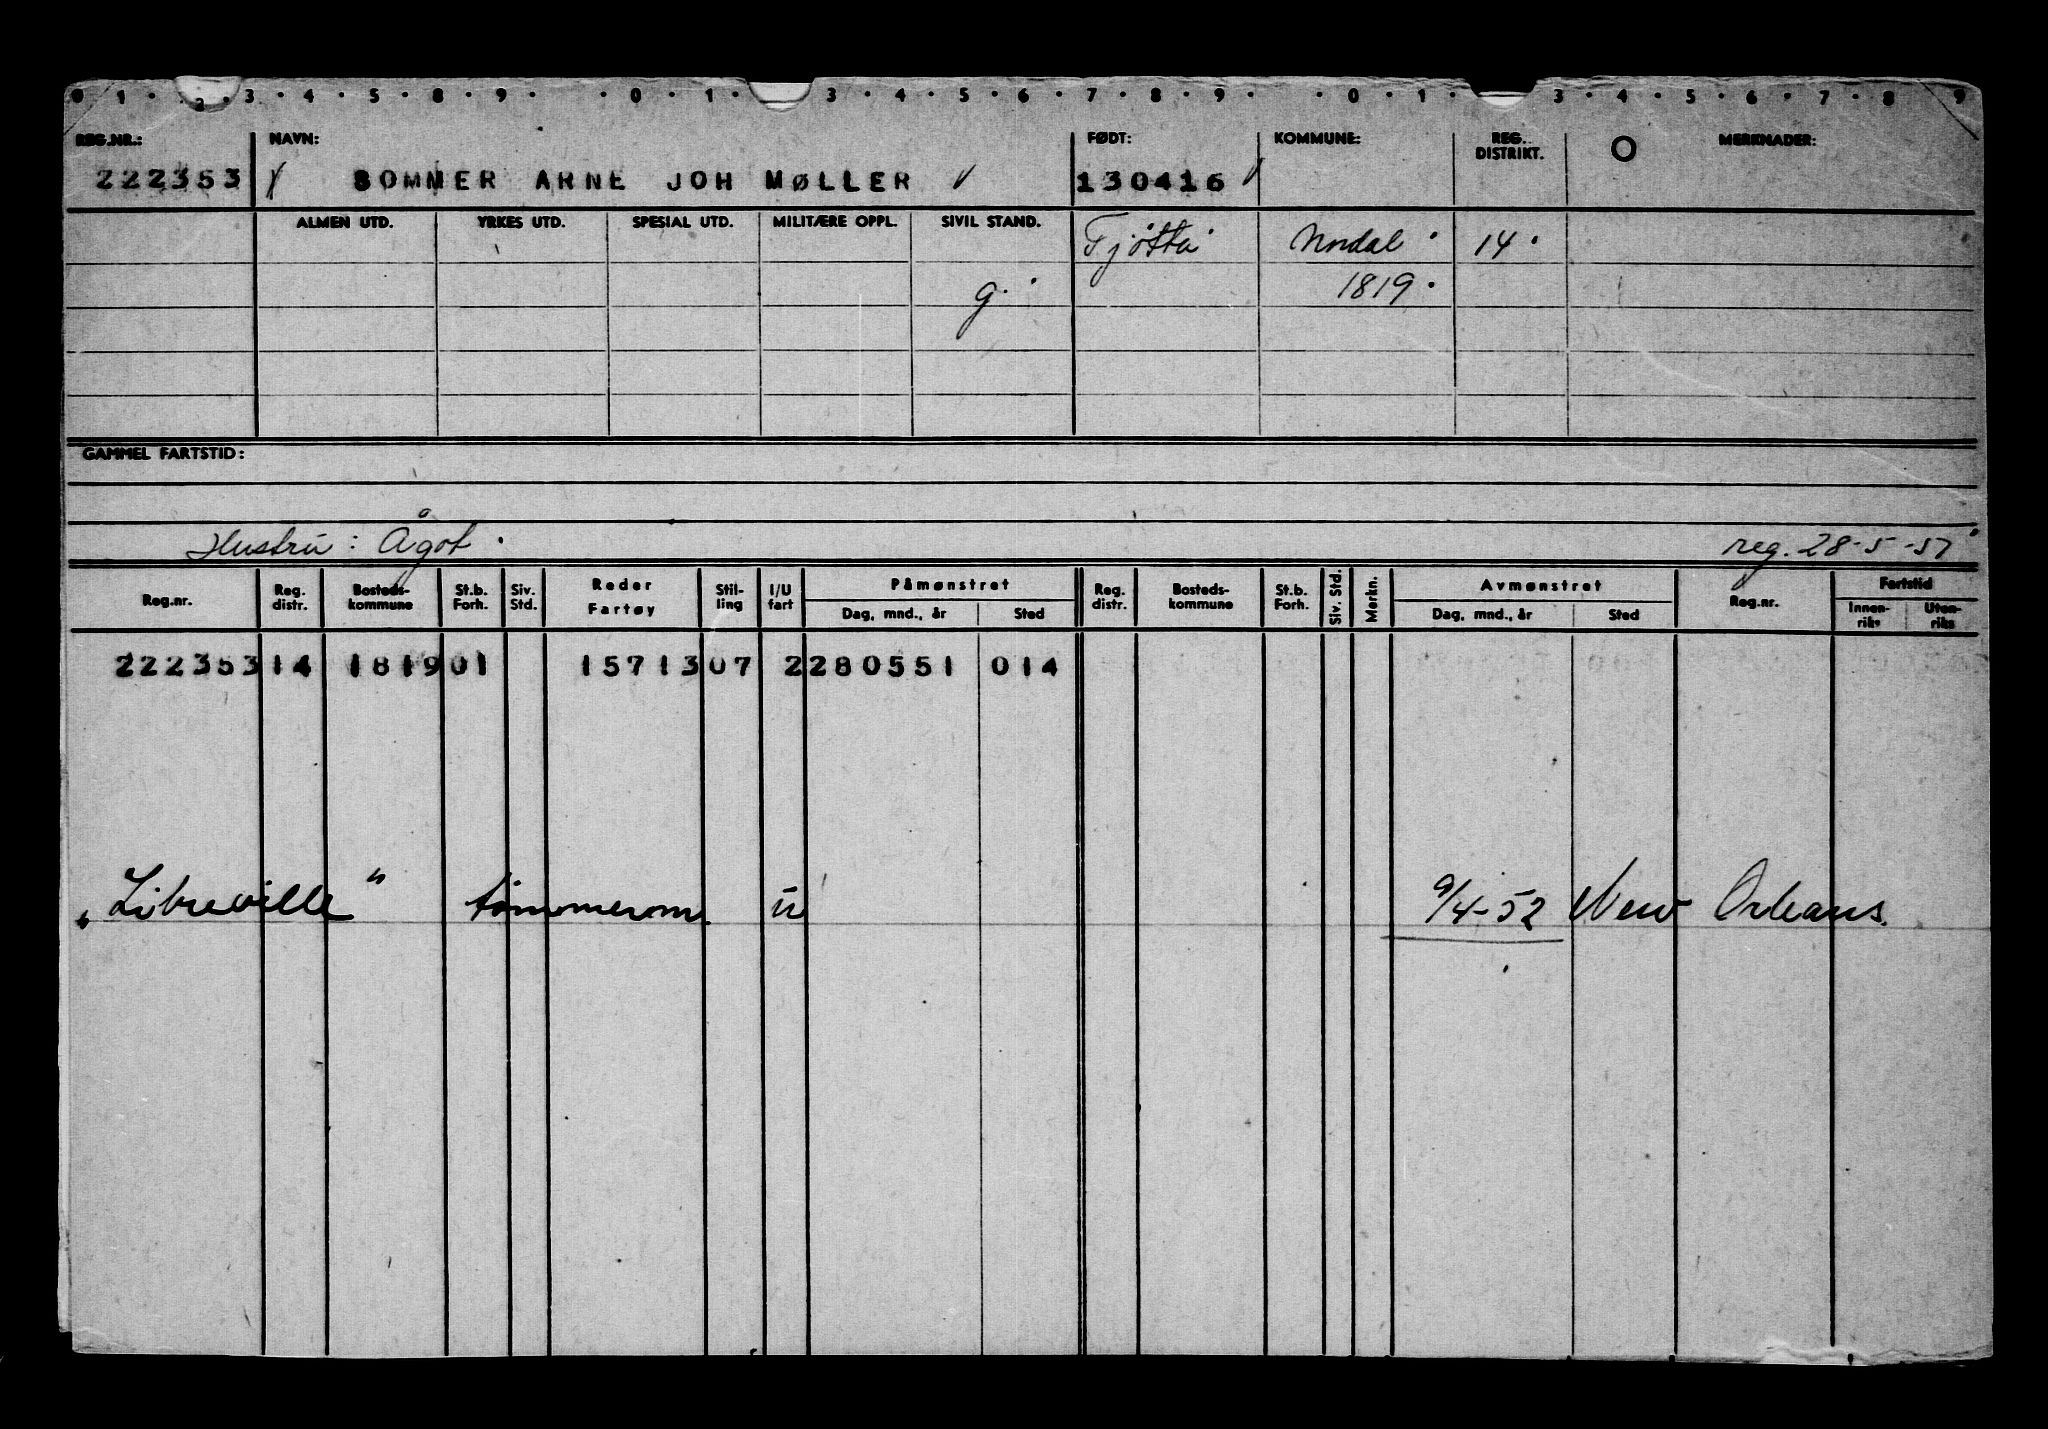 0 1 2 3 4 5 8 9 0 1 3 4 5 6 7 8 9 0 1 3 4 5 6 7 8 9
REG.NR.: NAVN: FØDT: KOMMUNE: REG. DISTRIKT. MERKNADER:
222353 SOMMER ARNE JOH MØLLER 130416
ALMEN UTD. YRKES UTD. SPESIAL UTD. MILITÆRE OPPL. SIVIL STAND. Tjøtta Nordal 14
g. 1819
GAMMEL FARTSTID:
Hustru: Ågot reg. 28-5-51
Reg.nr. Reg. distr. Bosteds- kommune St.b. Forh. Siv. Std. Reder Fartøy Stil- ling I/U fart Påmønstret Dag, mnd., år Sted Reg. distr. Bosteds- kommune St.b. Forh. Siv. Std. Merkn. Avmønstret Dag, mnd., år Sted Reg.nr. Fartstid Innen- riks Uten- riks
222353 14 1819 01 15713 07 2 280551 014
"Libreville" tømmerm. u 9/4-52 New Orleans.